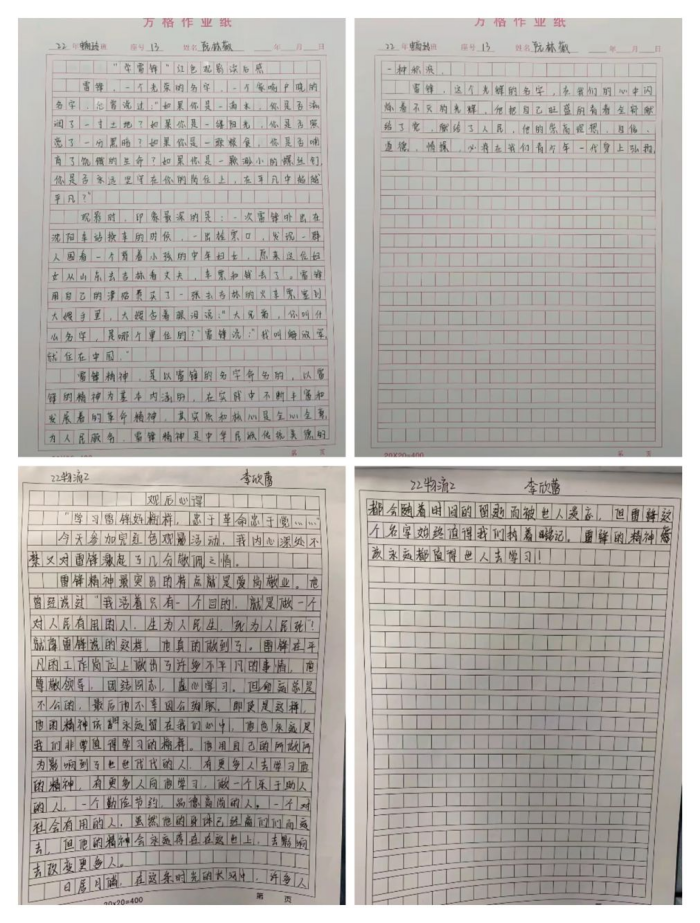 方格作业纸
22 年 班 编号 13 姓名 阮林敏 年 月 日
"学雷锋"红色观影活动感
雷锋，一个光荣的名字，一个家喻户晓的
名字，他曾说过"如果你是一滴水，你是否滋
润了一寸土地？如果你是一缕阳光，你是否照
亮了一分黑暗？如果你是一颗粮食，你是否哺
育了饥饿的生命？如果你是一颗最小的螺丝钉，
你是否永远坚守在你的岗位上，在平凡中
平凡？"
观影时，印象最深的是：一次雷锋外出在
沈阳车站换车的时候，一出检票口，发现一群
人围着一个背着小孩的中年妇女，原来这位妇
女从山东去吉林看丈夫，车票和钱丢了。雷锋
用自己的津贴费买了一张去吉林的火车票塞到
大嫂手里，大嫂含着眼泪说："大兄弟，你叫什
么名字，是哪个单位的？"雷锋说："我叫解放军，
就住在中国。"
雷锋精神，是以雷锋的名字命名的，以雷
锋的精神为基本内涵的，在实践中不断丰富和
发展着的革命精神，其实质和核心是全心全意
为人民服务，雷锋精神是中华民族传统美德的
20×20=400 第 页
方格作业纸
22 年 班 编号 13 姓名 阮林敏 年 月 日
一种积淀。
雷锋，这个光辉的名字，在我们的心中闪
烁着不灭的光辉，他把自己旺盛的青春全部献
给了党，献给了人民，他的崇高理想、信念、
道德、情操，必将在我们青少年一代身上弘扬。
20×20=400 第 页
22物流2 李欣蕾
观后心得
"学习雷锋好榜样，忠于革命忠于党……"
今天参加完红色观影活动，我内心深处不
禁又对雷锋激起了几分敬佩之情。
雷锋精神最突出的特点就是爱岗敬业。他
曾经说过"我活着只有一个目的，就是做一个
对人民有用的人，生为人民生，死为人民死"！
就像雷锋说的这样，他真的做到了。雷锋在平
凡的工作岗位上做出了许多不平凡的事情，他
尊敬领导，团结同志，虚心学习。但命运总是
不公的，最后他不幸因公殉职。即使是这样，
他的精神依旧永远留在我们心中，他也永远是
我们非常值得学习的榜样。他用自己的所做所
为影响到了世世代代的人，有更多人去学习他
的精神，有更多人向他学习，做一个乐于助人
的人，一个勤俭节约，品德高尚的人。一个对
社会有用的人，虽然他的身体已经离我们而远
去，但他的精神会永远存在在这世上，去影响
去改变更多人。
日居月诸，在这条时光的长河中，许多人
20×20=400 第 页
22物流2 李欣蕾
都会随着时间的留逝而被世人遗忘，但雷锋这
个名字始终值得我们持着铭记。雷锋的精神
永远都值得世人去学习！